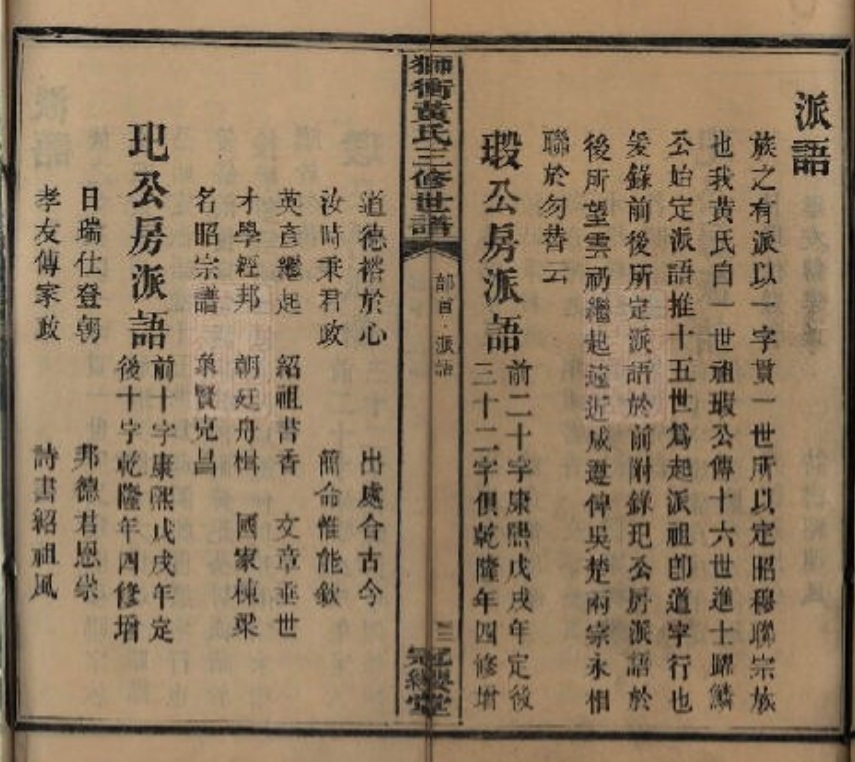 派語
族之有派以一字貫一世所以定昭穆聯宗族
也我黃氏自一世祖瑕公傳十六世進士躍鱗
公始定派語推十五世爲起派祖卽道字行也
爰錄前後所定派語於前附錄玘公房派語於
後所望雲礽繼起遠近咸遵俾吳楚兩宗永相
聯於勿替云
瑕公房派語
前二十字康熙戊戌年定後
三十二字俱乾隆年四修增
獅衝黃氏三修世譜
部首·派語
三
冠纓堂
道德裕於心 出處合古今
汝時秉君政 簡命惟能欽
英彥繼起 紹祖書香 文章垂世
才學經邦 朝廷舟楫 國家棟梁
名昭宗譜 象賢克昌
玘公房派語
前十字康熙戊戌年定
後十字乾隆年四修增
日瑞仕登朝 邦德君恩崇
孝友傳家政 詩書紹祖風